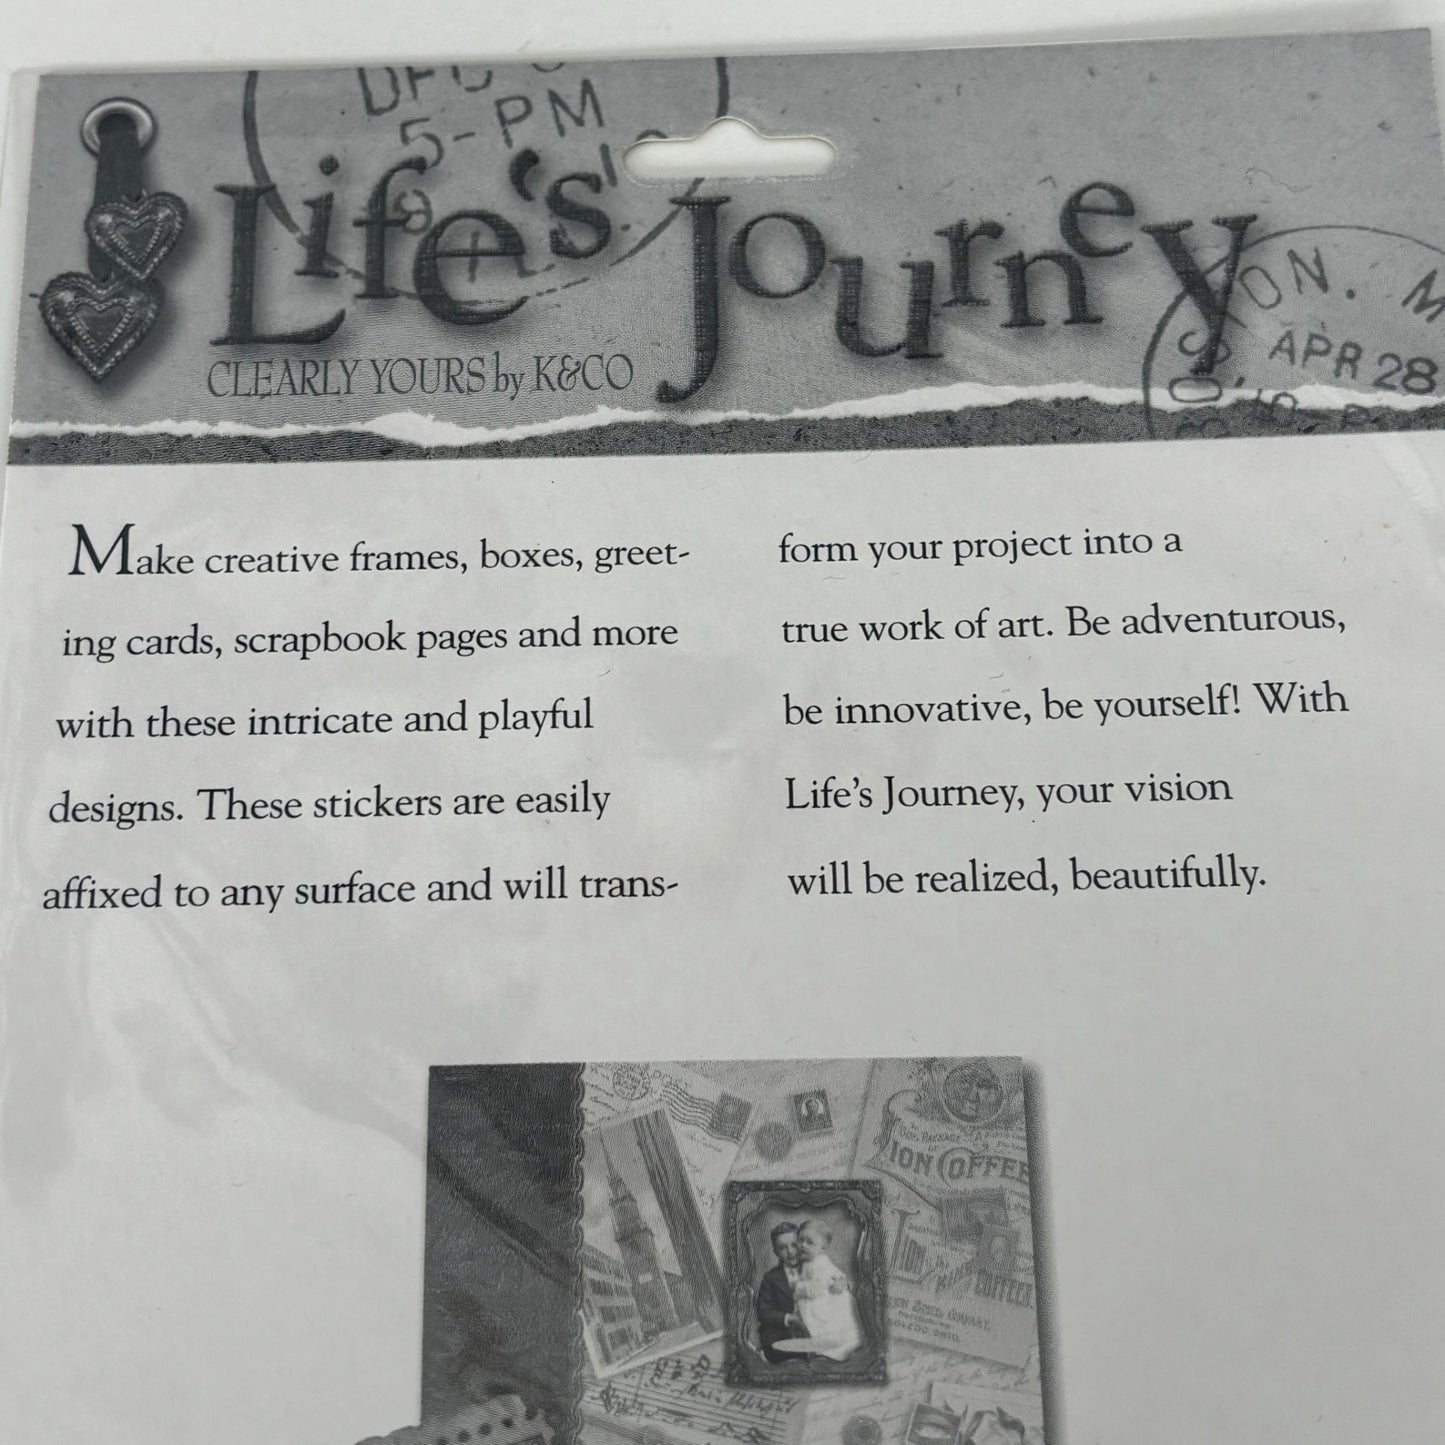 5-PM
Life's Journey
CLEARLY YOURS by K&CO
ON.
APR 28
Make creative frames, boxes, greet-
ing cards, scrapbook pages and more
with these intricate and playful
designs. These stickers are easily
affixed to any surface and will trans-
form your project into a
true work of art. Be adventurous,
be innovative, be yourself! With
Life's Journey, your vision
will be realized, beautifully.
PACKAGE
LION COFFEE
LION
COFFEE
SPICE COMPANY,
TOLEDO, OHIO.